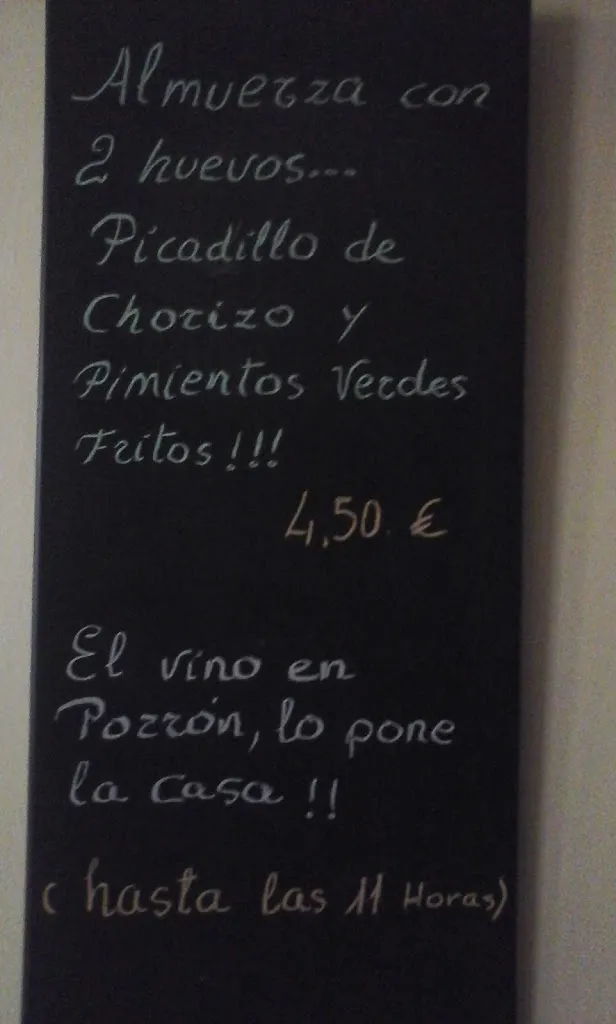 Almuerza con
2 huevos...
Picadillo de
Chorizo y
Pimientos Verdes
Fritos!!!
4,50 €
El vino en
Porrón, lo pone
la casa !!
(hasta las 11 Horas)